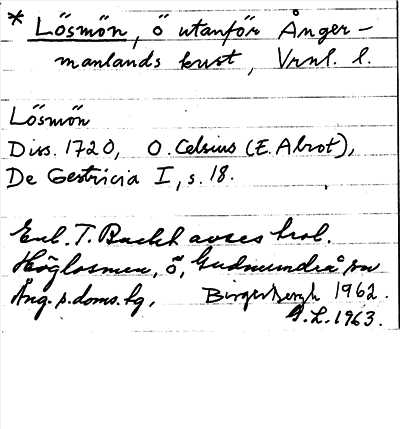 * Lösmön, ö utanför Ånger-
manlands kust, Vrnl. l.
Lösmön
Diss. 1720, O. Celsius (E. Abrot),
De Gestricia I, s. 18.
Enl. T. Buckh avses trol.
Höglosmen, ö, Gudmundrå sn
Ång. s. doms. hg. Birger Bergh 1962.
G.L. 1963.